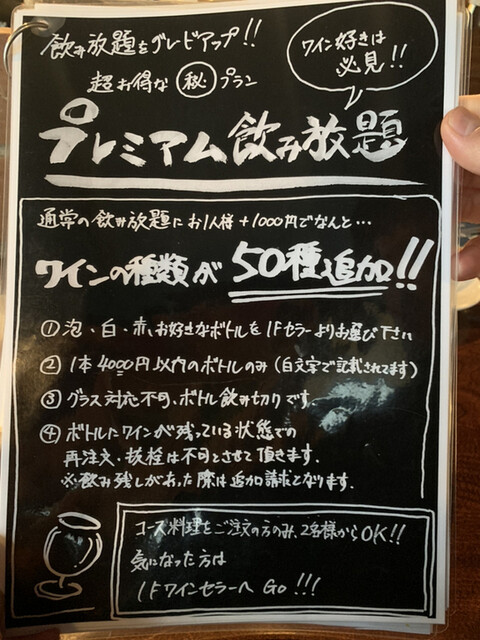 飲み放題をグレードアップ!!
超お得な㊙プラン
ワイン好きは
必見!!
プレミアム飲み放題
通常の飲み放題にお1人様+1000円でなんと…
ワインの種類が50種追加!!
①泡・白・赤、お好きなボトルを1Fセラーよりお選び下さい
②1本4000円以内のボトルのみ(白文字で記載されてます)
③グラス対応不可、ボトル飲み切りです。
④ボトルにワインが残っている状態での
再注文・抜栓は不可とさせて頂きます。
※飲み残しがあった際は追加請求となります。
コース料理をご注文の方のみ、2名様からOK!!
気になった方は
1FワインセラーへGo!!!